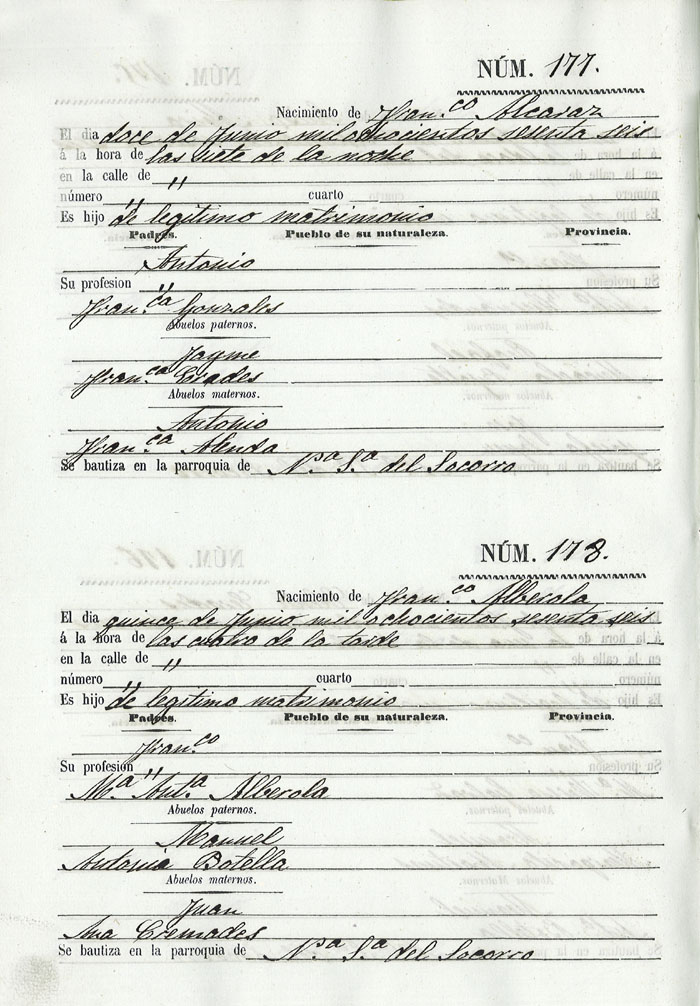 NÚM. 177.
Nacimiento de Fran.co Alcaraz
El dia doce de Junio mil ochocientos sesenta seis
á la hora de las siete de la noche
en la calle de "
número " cuarto
Es hijo de legitimo matrimonio
Padres. Pueblo de su naturaleza. Provincia.
Antonio
Su profesion "
Fran.ca Gonzales
Abuelos paternos.
Jayme
Fran.ca Erades
Abuelos maternos.
Antonio
Fran.ca Alenda
Se bautiza en la parroquia de N.ra S.a del Socorro
NÚM. 178.
Nacimiento de Fran.co Alberola
El dia quince de Junio mil ochocientos sesenta seis
á la hora de las cuatro de la tarde
en la calle de "
número " cuarto
Es hijo de legitimo matrimonio
Padres. Pueblo de su naturaleza. Provincia.
Fran.co
Su profesion "
M.a Ant.a Alberola
Abuelos paternos.
Manuel
Antonia Botella
Abuelos maternos.
Juan
Ana Cremades
Se bautiza en la parroquia de N.ra S.a del Socorro